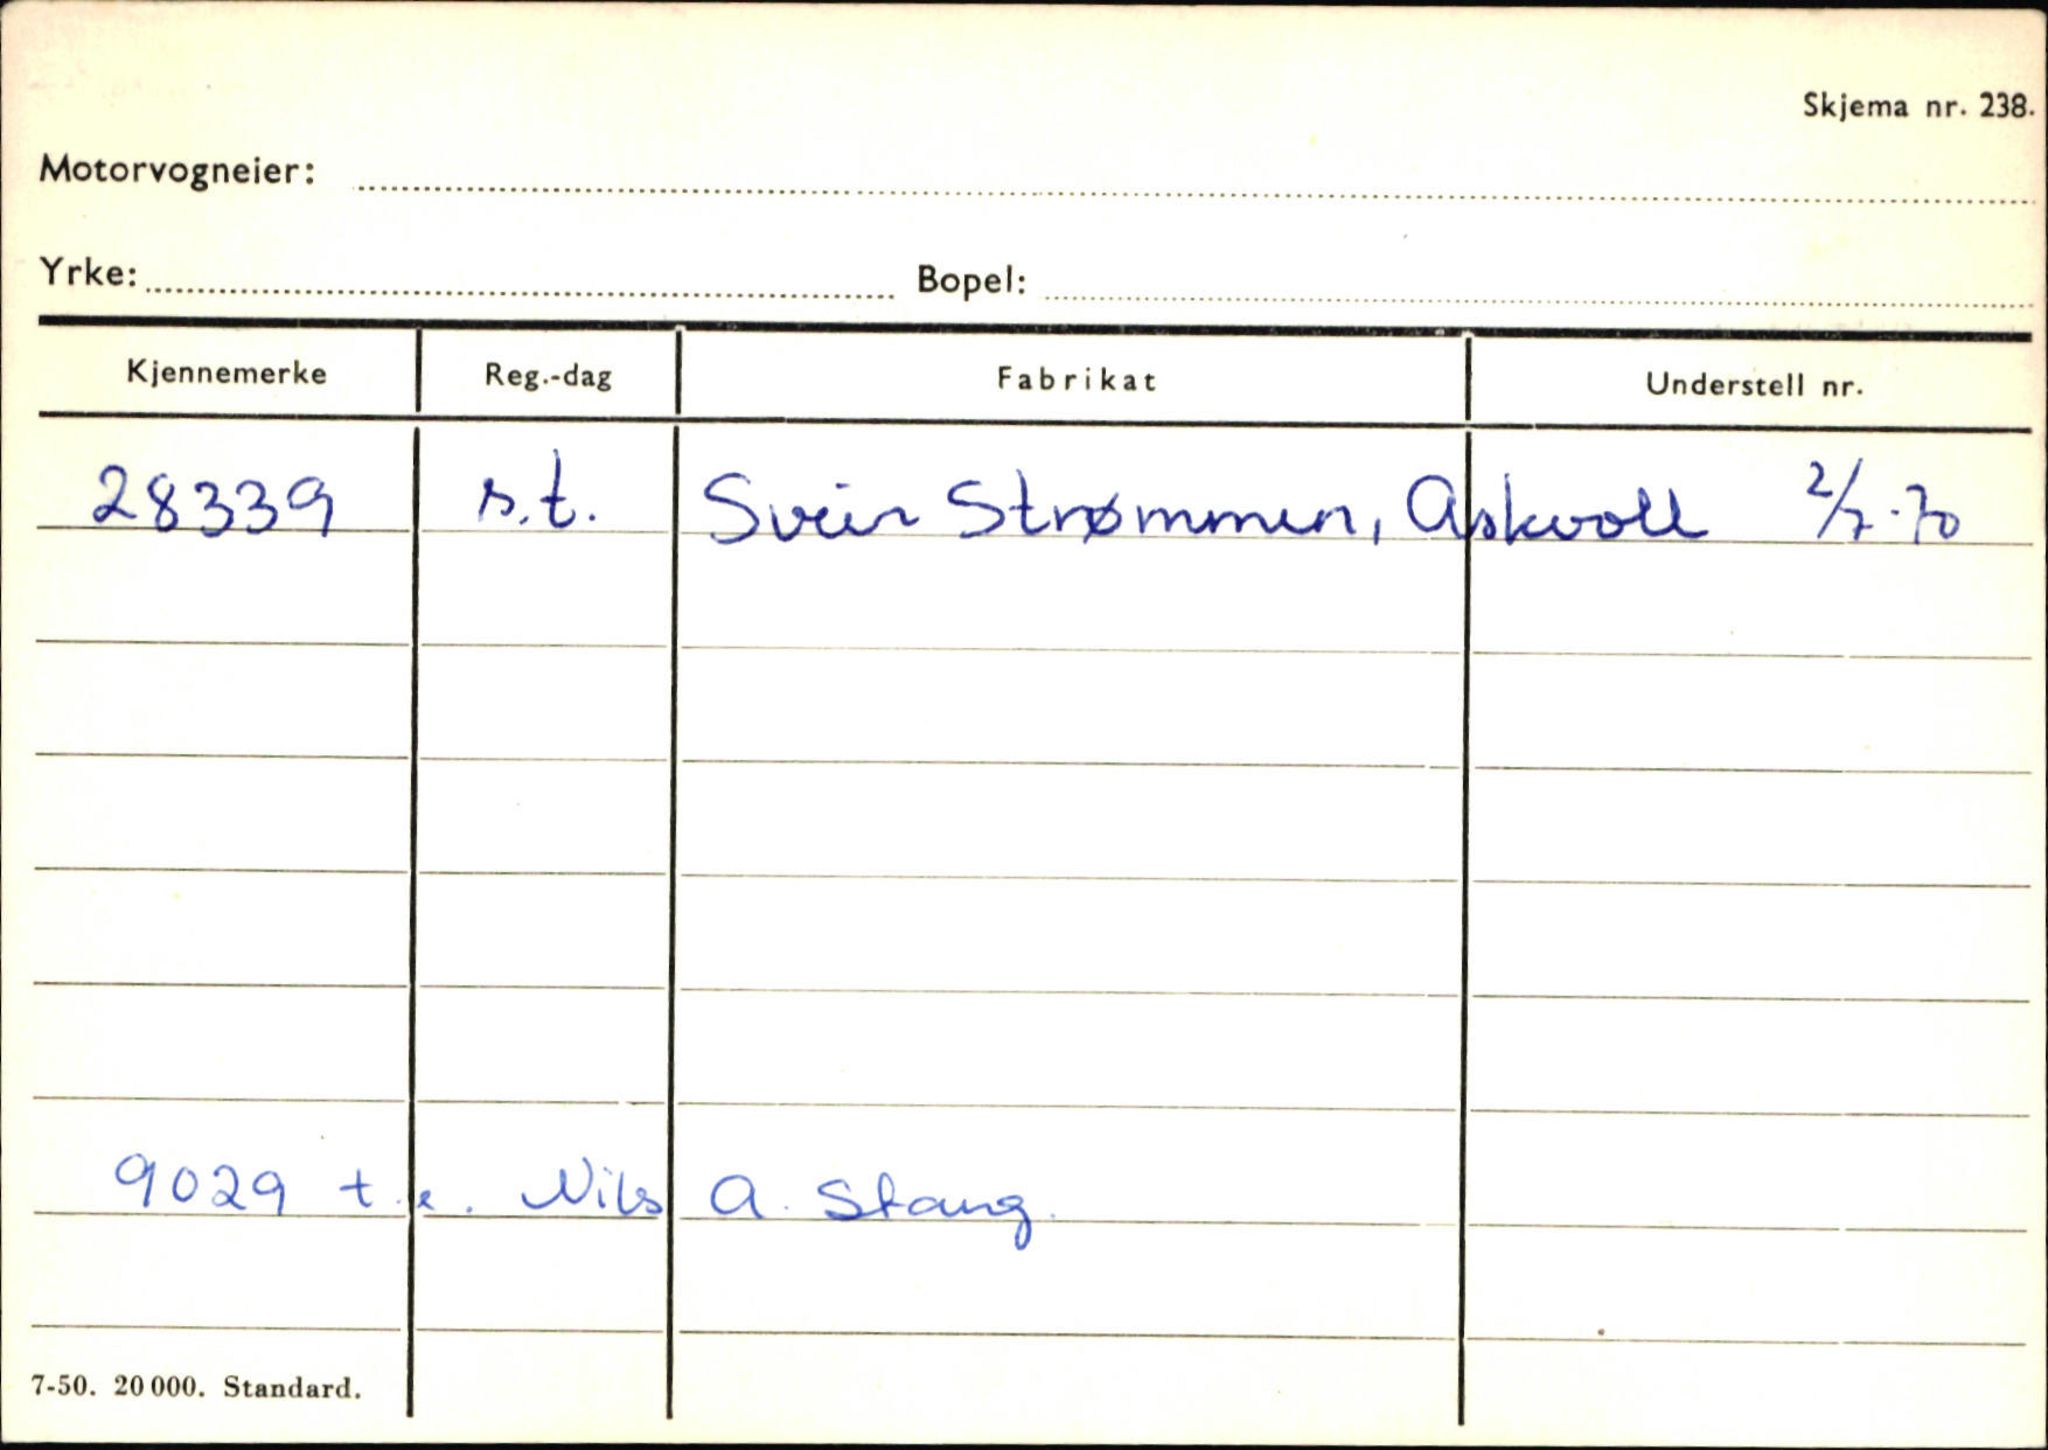 Skjema nr. 238.
Motorvogneier:
Yrke: Bopel:
Kjennemerke Reg.-dag Fabrikat Understell nr.
28339 s.t. Svein Strømmen, Askvoll 2/7-70
9029 t.e. Nils A. Stang.
7-50. 20 000. Standard.